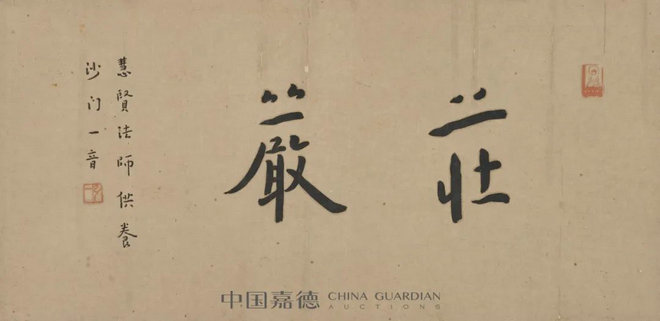 莊嚴
慧賢法師供養
沙门一音
中国嘉德 CHINA GUARDIAN
AUCTIONS